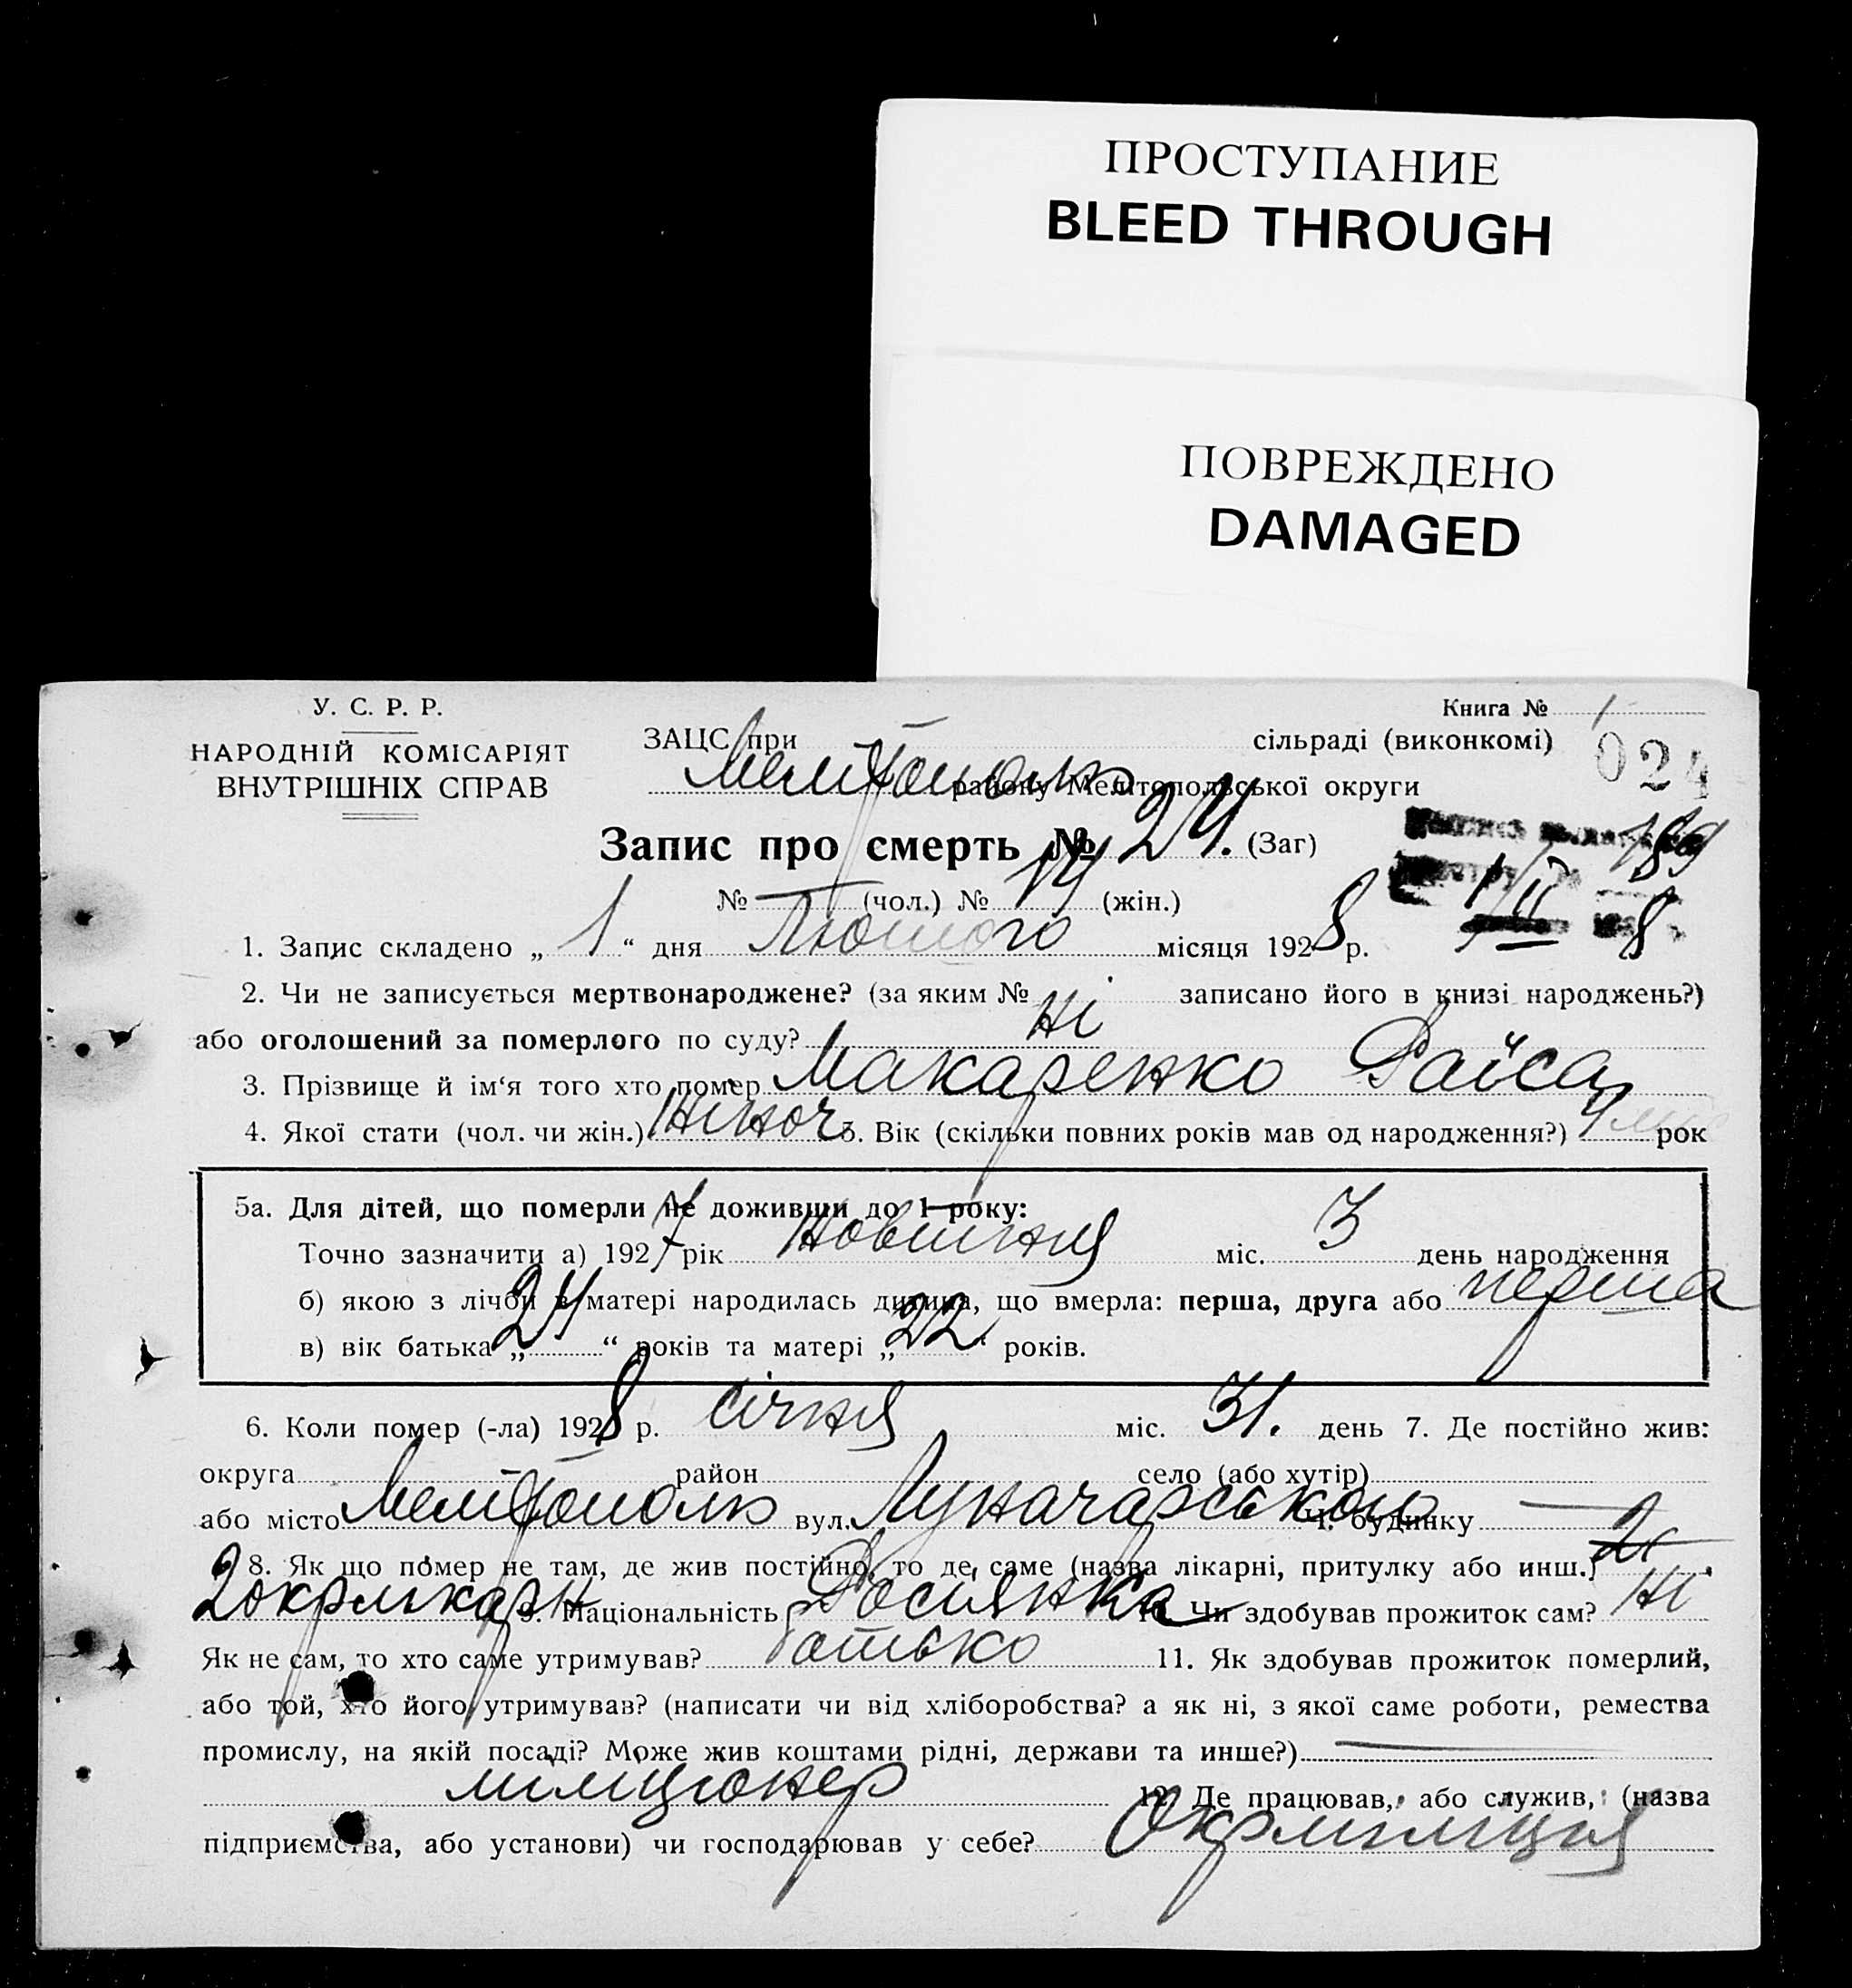 ПРОСТУПАНИЕ
BLEED THROUGH
ПОВРЕЖДЕНО
DAMAGED
У. С. Р. Р.
НАРОДНІЙ КОМІСАРІЯТ
ВНУТРІШНІХ СПРАВ
Книга № 1
ЗАЦС при сільраді (виконкомі)
024
Мелітополь району Мелітопольської округи
Запис про смерть № 24. (Заг)
189
№ (чол.) № 14 (жін.)
1/II 8
1. Запис складено „ 1 “ дня Лютого місяця 1928 р.
2. Чи не записується мертвонароджене? (за яким № записано його в книзі народжень?)
або оголошений за померлого по суду? Ні
3. Прізвище й ім‘я того хто помер Макаренко Раїса
4. Якої стати (чол. чи жін.) Жіноч 5. Вік (скільки повних років мав од народження?) 4 міс рок
5а. Для дітей, що померли не доживши до 1 року:
Точно зазначити а) 1927 рік Жовтня міс. 3 день народження
б) якою з лічби в матері народилась дитина, що вмерла: перша, друга або перша
в) вік батька „ 24 “ років та матері „ 22 “ років.
6. Коли помер (-ла) 1928 р. січня міс. 31. день 7. Де постійно жив:
округа район село (або хутір)
або місто Мелітополь вул. Луначарського ч. будинку 21
8. Як що помер не там, де жив постійно, то де саме (назва лікарні, притулку або инш.)
2 окрлікарн 9. Національність Росіянка 10. Чи здобував прожиток сам? Ні
Як не сам, то хто саме утримував? батько 11. Як здобував прожиток померлий,
або той, хто його утримував? (написати чи від хліборобства? а як ні, з якої саме роботи, ремества
промислу, на якій посаді? Може жив коштами рідні, держави та инше?)
міліціонер 12. Де працював, або служив, (назва
підприємства, або установи) чи господарював у себе? Окрміліція